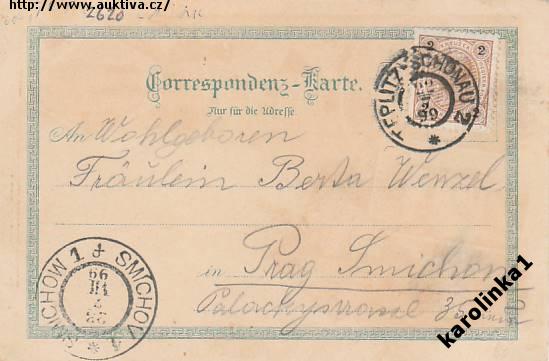 http://www.auktiva.cz/
2620
2 2
Correspondenz-Karte.
Nur für die Adresse
TEPLITZ-SCHÖNAU 2
An Wohlgeboren
Fräulein Berta Wenzel
in Prag Smichow
Palackystrasse
SMICHOW 1 SMÍCHOV 1
karolinka1